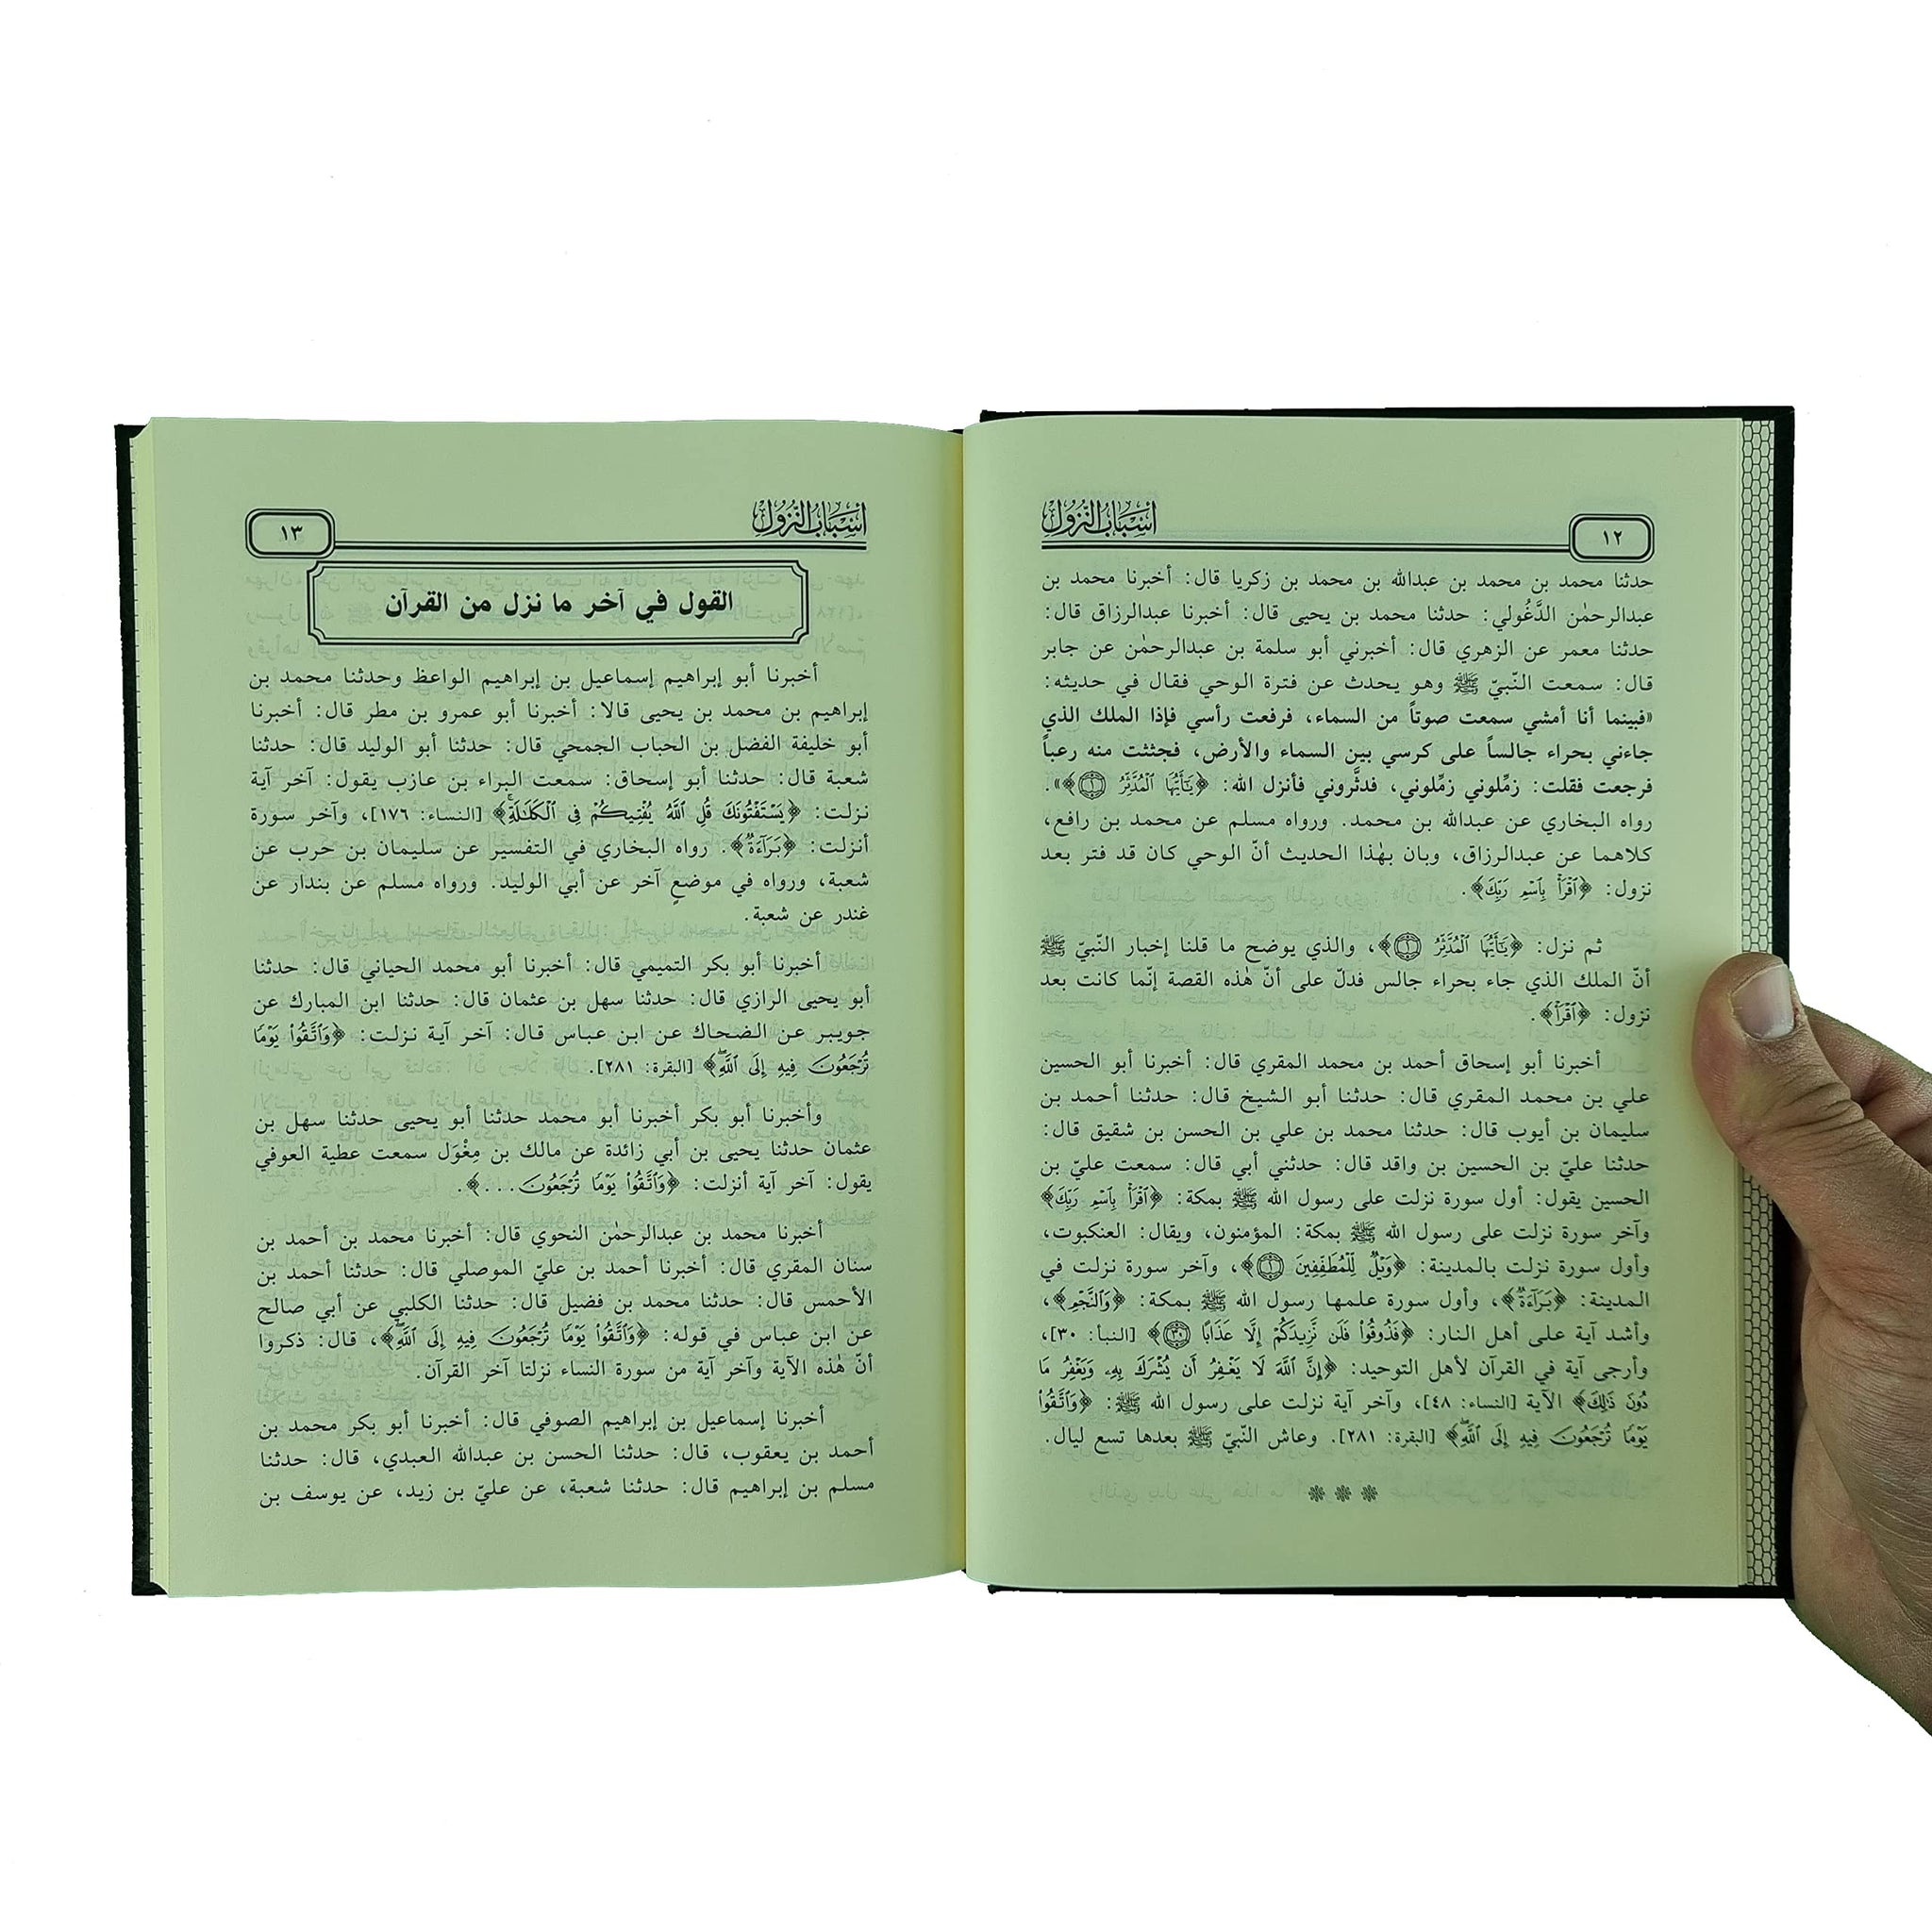 ١٢
أسباب النزول
حدثنا محمد بن محمد بن عبدالله بن محمد بن زكريا قال: أخبرنا محمد بن
عبدالرحمٰن الدَّغُولي: حدثنا محمد بن يحيى قال: أخبرنا عبدالرزاق قال:
حدثنا معمر عن الزهري قال: أخبرني أبو سلمة بن عبدالرحمٰن عن جابر
قال: سمعت النّبيّ ﷺ وهو يحدث عن فترة الوحي فقال في حديثه:
«فبينما أنا أمشي سمعت صوتاً من السماء، فرفعت رأسي فإذا الملك الذي
جاءني بحراء جالساً على كرسي بين السماء والأرض، فجثثت منه رعباً
فرجعت فقلت: زمِّلوني زمِّلوني، فدثَّروني فأنزل الله: ﴿يَٰٓأَيُّهَا ٱلْمُدَّثِّرُ ۝١﴾».
رواه البخاري عن عبدالله بن محمد. ورواه مسلم عن محمد بن رافع،
كلاهما عن عبدالرزاق، وبان بهٰذا الحديث أنّ الوحي كان قد فتر بعد
نزول: ﴿ٱقْرَأْ بِٱسْمِ رَبِّكَ﴾.
ثم نزل: ﴿يَٰٓأَيُّهَا ٱلْمُدَّثِّرُ ۝١﴾، والذي يوضح ما قلنا إخبار النّبيّ ﷺ
أنّ الملك الذي جاء بحراء جالس فدلّ على أنّ هٰذه القصة إنّما كانت بعد
نزول: ﴿ٱقْرَأْ﴾.
أخبرنا أبو إسحاق أحمد بن محمد المقري قال: أخبرنا أبو الحسين
علي بن محمد المقري قال: حدثنا أبو الشيخ قال: حدثنا أحمد بن
سليمان بن أيوب قال: حدثنا محمد بن علي بن الحسن بن شقيق قال:
حدثنا عليّ بن الحسين بن واقد قال: حدثني أبي قال: سمعت عليّ بن
الحسين يقول: أول سورة نزلت على رسول الله ﷺ بمكة: ﴿ٱقْرَأْ بِٱسْمِ رَبِّكَ﴾
وآخر سورة نزلت على رسول الله ﷺ بمكة: المؤمنون، ويقال: العنكبوت،
وأول سورة نزلت بالمدينة: ﴿وَيْلٌ لِّلْمُطَفِّفِينَ ۝١﴾، وآخر سورة نزلت في
المدينة: ﴿بَرَآءَةٌ﴾، وأول سورة علمها رسول الله ﷺ بمكة: ﴿وَٱلنَّجْمِ﴾،
وأشد آية على أهل النار: ﴿فَذُوقُوا۟ فَلَن نَّزِيدَكُمْ إِلَّا عَذَابًا ۝٣٠﴾ [النبأ: ٣٠]،
وأرجى آية في القرآن لأهل التوحيد: ﴿إِنَّ ٱللَّهَ لَا يَغْفِرُ أَن يُشْرَكَ بِهِۦ وَيَغْفِرُ مَا
دُونَ ذَٰلِكَ﴾ الآية [النساء: ٤٨]، وآخر آية نزلت على رسول الله ﷺ: ﴿وَٱتَّقُوا۟
يَوْمًا تُرْجَعُونَ فِيهِ إِلَى ٱللَّهِۖ﴾ [البقرة: ٢٨١]. وعاش النّبيّ ﷺ بعدها تسع ليال.
❊ ❊ ❊
أسباب النزول
١٣
القول في آخر ما نزل من القرآن
أخبرنا أبو إبراهيم إسماعيل بن إبراهيم الواعظ وحدثنا محمد بن
إبراهيم بن محمد بن يحيى قالا: أخبرنا أبو عمرو بن مطر قال: أخبرنا
أبو خليفة الفضل بن الحباب الجمحي قال: حدثنا أبو الوليد قال: حدثنا
شعبة قال: حدثنا أبو إسحاق: سمعت البراء بن عازب يقول: آخر آية
نزلت: ﴿يَسْتَفْتُونَكَ قُلِ ٱللَّهُ يُفْتِيكُمْ فِى ٱلْكَلَٰلَةِۚ﴾ [النساء: ١٧٦]، وآخر سورة
أنزلت: ﴿بَرَآءَةٌ﴾. رواه البخاري في التفسير عن سليمان بن حرب عن
شعبة، ورواه في موضعٍ آخر عن أبي الوليد. ورواه مسلم عن بندار عن
غندر عن شعبة.
أخبرنا أبو بكر التميمي قال: أخبرنا أبو محمد الحياني قال: حدثنا
أبو يحيى الرازي قال: حدثنا سهل بن عثمان قال: حدثنا ابن المبارك عن
جويبر عن الضحاك عن ابن عباس قال: آخر آية نزلت: ﴿وَٱتَّقُوا۟ يَوْمًا
تُرْجَعُونَ فِيهِ إِلَى ٱللَّهِۖ﴾ [البقرة: ٢٨١].
وأخبرنا أبو بكر أخبرنا أبو محمد حدثنا أبو يحيى حدثنا سهل بن
عثمان حدثنا يحيى بن أبي زائدة عن مالك بن مِغْوَل سمعت عطية العوفي
يقول: آخر آية أنزلت: ﴿وَٱتَّقُوا۟ يَوْمًا تُرْجَعُونَ...﴾.
أخبرنا محمد بن عبدالرحمٰن النحوي قال: أخبرنا محمد بن أحمد بن
سنان المقري قال: أخبرنا أحمد بن عليّ الموصلي قال: حدثنا أحمد بن
الأحمس قال: حدثنا محمد بن فضيل قال: حدثنا الكلبي عن أبي صالح
عن ابن عباس في قوله: ﴿وَٱتَّقُوا۟ يَوْمًا تُرْجَعُونَ فِيهِ إِلَى ٱللَّهِۖ﴾، قال: ذكروا
أنّ هٰذه الآية وآخر آية من سورة النساء نزلتا آخر القرآن.
أخبرنا إسماعيل بن إبراهيم الصوفي قال: أخبرنا أبو بكر محمد بن
أحمد بن يعقوب، قال: حدثنا الحسن بن عبدالله العبدي، قال: حدثنا
مسلم بن إبراهيم قال: حدثنا شعبة، عن عليّ بن زيد، عن يوسف بن